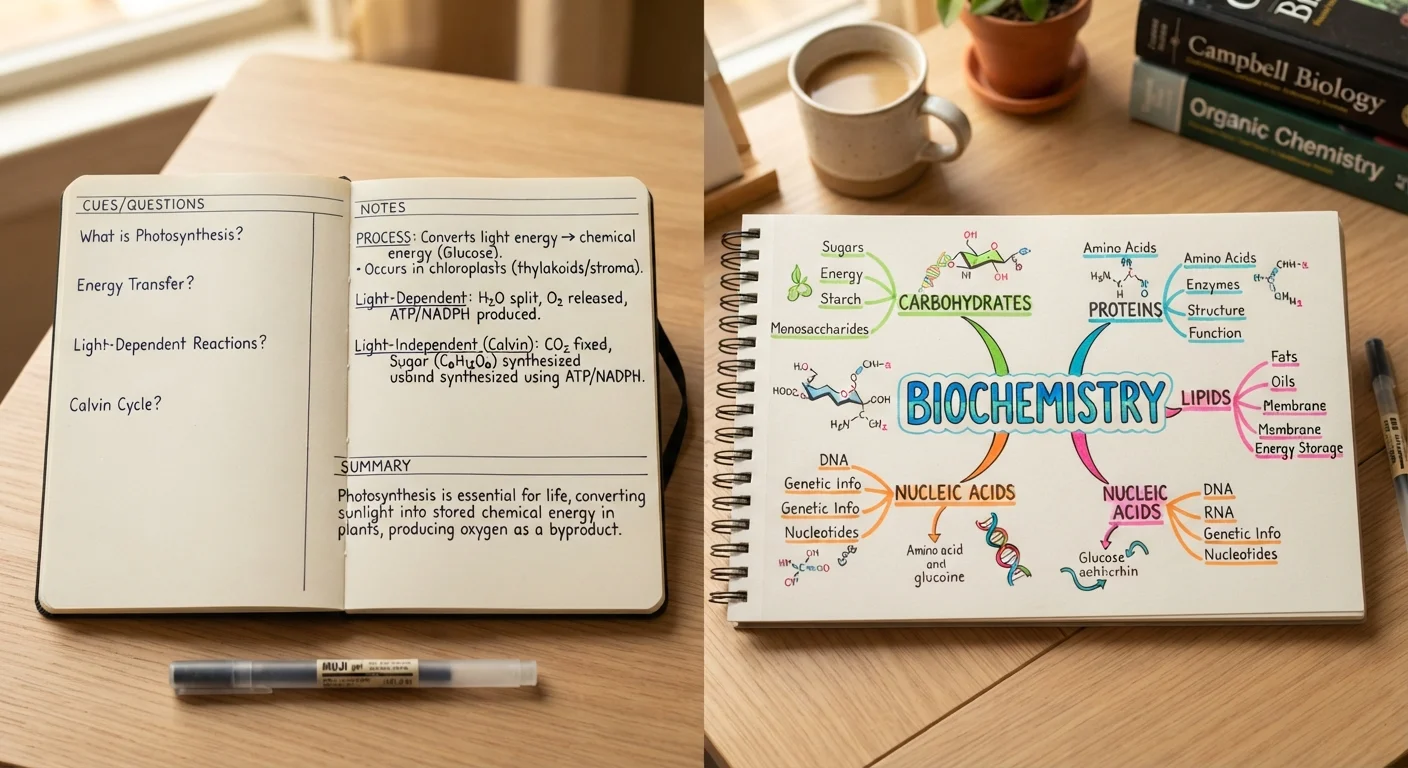 CUES/QUESTIONS
What is Photosynthesis?
Energy Transfer?
Light-Dependent Reactions?
Calvin Cycle?
NOTES
PROCESS: Converts light energy → chemical
energy (Glucose).
• Occurs in chloroplasts (thylakoids/stroma).
Light-Dependent: H₂O split, O₂ released,
ATP/NADPH produced.
Light-Independent (Calvin): CO₂ fixed,
Sugar synthesized
usbind synthesized using ATP/NADPH.
SUMMARY
Photosynthesis is essential for life, converting
sunlight into stored chemical energy in
plants, producing oxygen as a byproduct.
MUJI gel
Campbell Biology
Organic Chemistry
BIOCHEMISTRY
Sugars
Energy
Starch
Monosaccharides
CARBOHYDRATES
OH
OH
Amino Acids
H₂N
H
PROTEINS
Amino Acids
Enzymes
Structure
Function
HOOC
COH
LIPIDS
Fats
Oils
Membrane
Msmbrane
Energy Storage
DNA
Genetic Info
Genetic Info
Nucleotides
NUCLEIC ACIDS
Amino acid
and
glucoine
NUCLEIC
ACIDS
DNA
RNA
Genetic Info
Nucleotides
Glucose
aehhcrhin